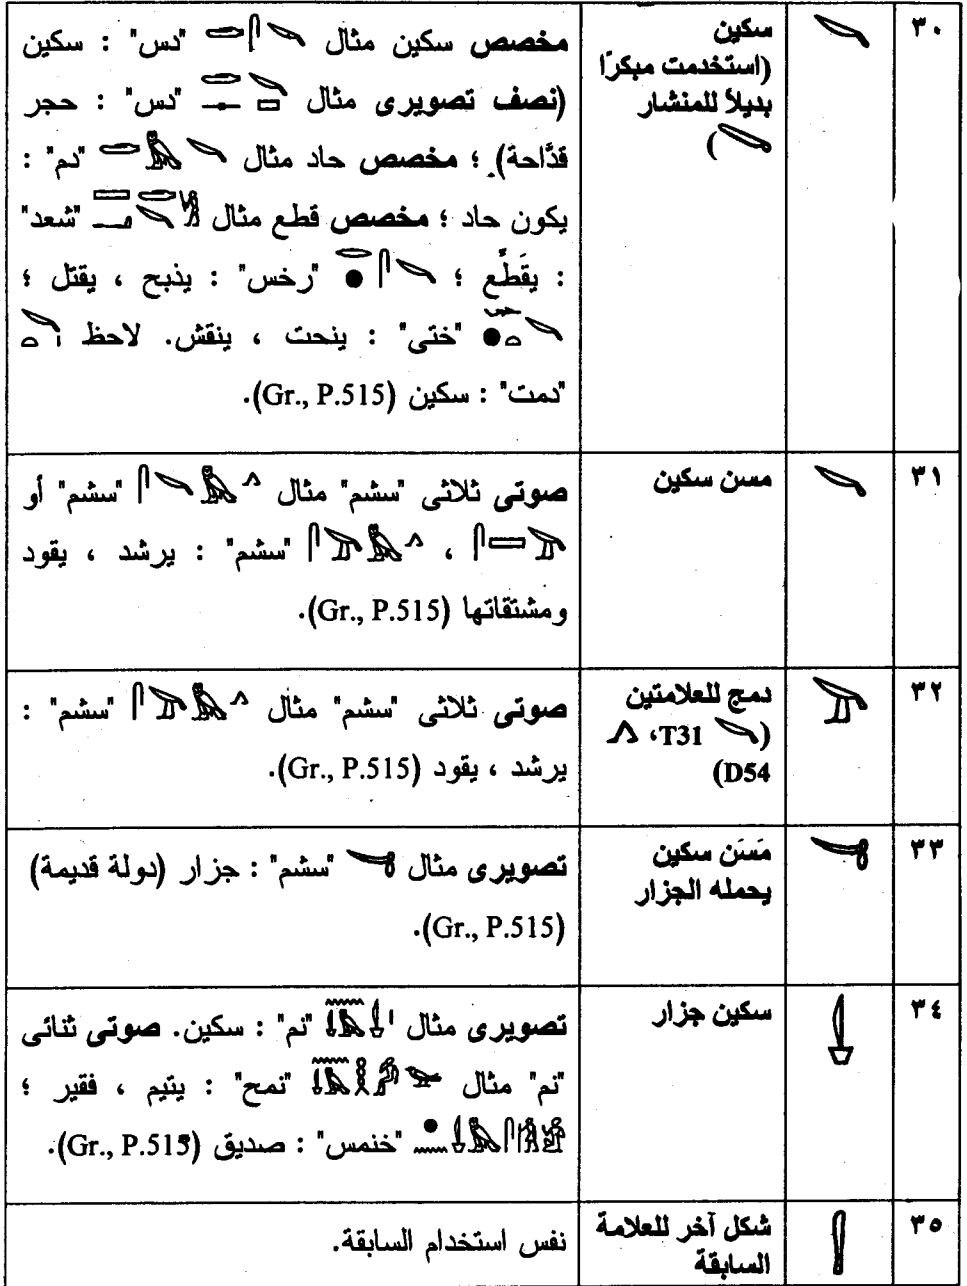 ٣٠
سكين
(استخدمت مبكرًا
بديلاً للمنشار
)
مخصص سكين مثال "دس" : سكين
(نصف تصويرى مثال "دس" : حجر
قدَّاحة) ؛ مخصص حاد مثال "دم" :
يكون حاد ؛ مخصص قطع مثال "شعد"
: يقَطَّع ؛ "رخس" : يذبح ، يقتل ؛
"ختى" : ينحت ، ينقش. لاحظ
"دمت" : سكين (Gr., P.515).
٣١
مسن سكين
صوتى ثلاثى "سشم" مثال "سشم" أو
، "سشم" : يرشد ، يقود
ومشتقاتها (Gr., P.515).
٣٢
دمج للعلامتين
(T31، 
D54)
صوتى ثلاثى "سشم" مثال "سشم" :
يرشد ، يقود (Gr., P.515).
٣٣
مَسَن سكين
يحمله الجزار
تصويرى مثال "سشم" : جزار (دولة قديمة)
(Gr., P.515).
٣٤
سكين جزار
تصويرى مثال "نم" : سكين. صوتى ثنائى
"نم" مثال "نمح" : يتيم ، فقير ؛
"خنمس" : صديق (Gr., P.515).
٣٥
شكل آخر للعلامة
السابقة
نفس استخدام السابقة.